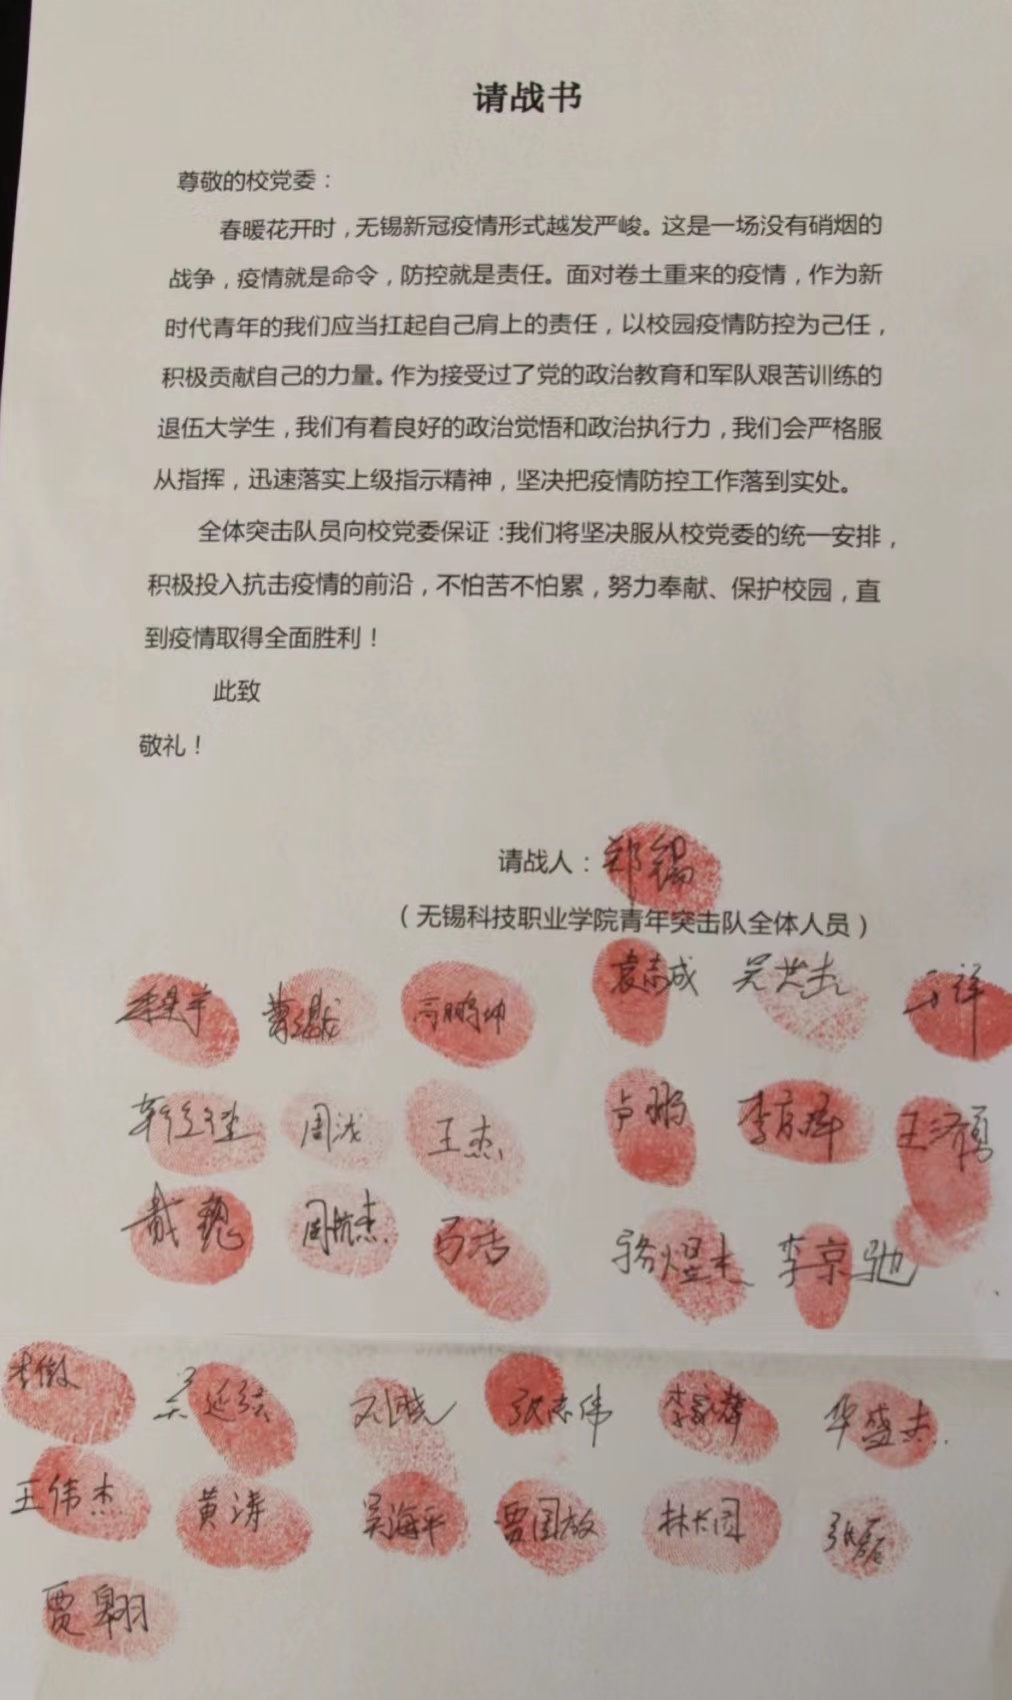 请战书
尊敬的校党委：
春暖花开时，无锡新冠疫情形式越发严峻。这是一场没有硝烟的
战争，疫情就是命令，防控就是责任。面对卷土重来的疫情，作为新
时代青年的我们应当扛起自己肩上的责任，以校园疫情防控为己任，
积极贡献自己的力量。作为接受过了党的政治教育和军队艰苦训练的
退伍大学生，我们有着良好的政治觉悟和政治执行力，我们会严格服
从指挥，迅速落实上级指示精神，坚决把疫情防控工作落到实处。
全体突击队员向校党委保证：我们将坚决服从校党委的统一安排，
积极投入抗击疫情的前沿，不怕苦不怕累，努力奉献、保护校园，直
到疫情取得全面胜利！
此致
敬礼！
请战人：郑锡
（无锡科技职业学院青年突击队全体人员）
高鹏坤 袁志成 吴世杰
王杰 卢鹏
戴魏 周航杰 李京驰
张志伟 华盛杰
王伟杰 黄涛 吴海平 贾国放 林长园 张磊
贾翱